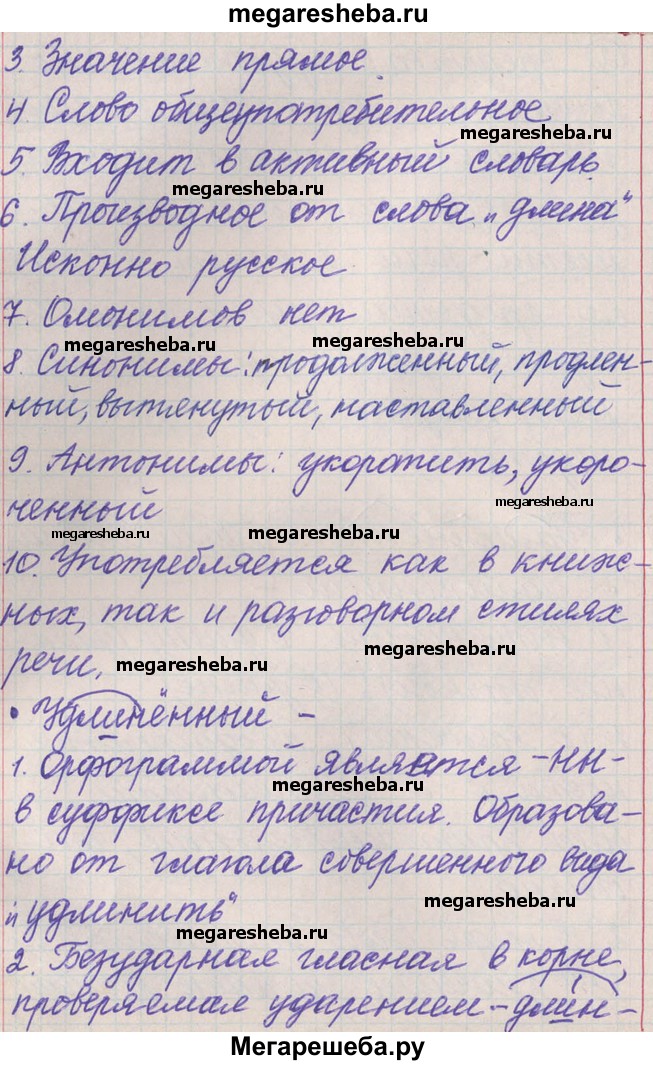 megaresheba.ru
3. Значение прямое.
4 Слово общеупотребительное
megaresheba.ru
5. Входит в активный словарь.
megaresheba.ru
6. Производное от слова „длина“
Исконно русское
7. Омонимов нет
megaresheba.ru
megaresheba.ru
8. Синонимы: продолженный, продлен-
ный, вытянутый, наставленный
9. Антонимы: укоратить, укоро-
ченный
megaresheba.ru
megaresheba.ru
megaresheba.ru
10. Употребляется как в книж-
ных, так и разговорном стилях
речи.
megaresheba.ru
megaresheba.ru
• Удлинённый -
1. Орфограммой является -нн-
megaresheba.ru
в суффиксе причастия. Образова-
но от глагола совершенного вида
megaresheba.ru
„удлинить“
megaresheba.ru
2. Безударная гласная в корне,
проверяемая ударением - длин -
Мегарешеба.ру